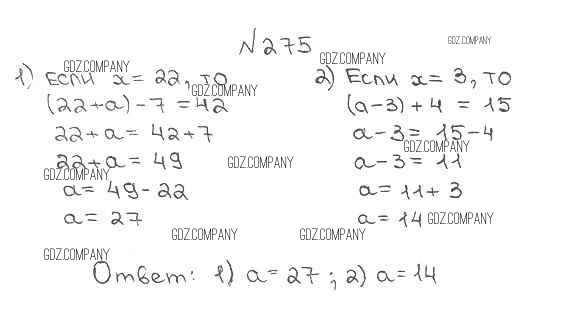 №275
GDZ.COMPANY
GDZ.COMPANY
GDZ.COMPANY
1) Если x = 22, то
2) Если x = 3, то
GDZ.COMPANY
(22+a) - 7 = 42
(a-3) + 4 = 15
22+a = 42+7
a-3 = 15-4
GDZ.COMPANY
22+a = 49
GDZ.COMPANY
a-3 = 11
GDZ.COMPANY
a = 49-22
a = 11+3
a = 27
a = 14
GDZ.COMPANY
GDZ.COMPANY
GDZ.COMPANY
GDZ.COMPANY
Ответ: 1) a = 27; 2) a = 14